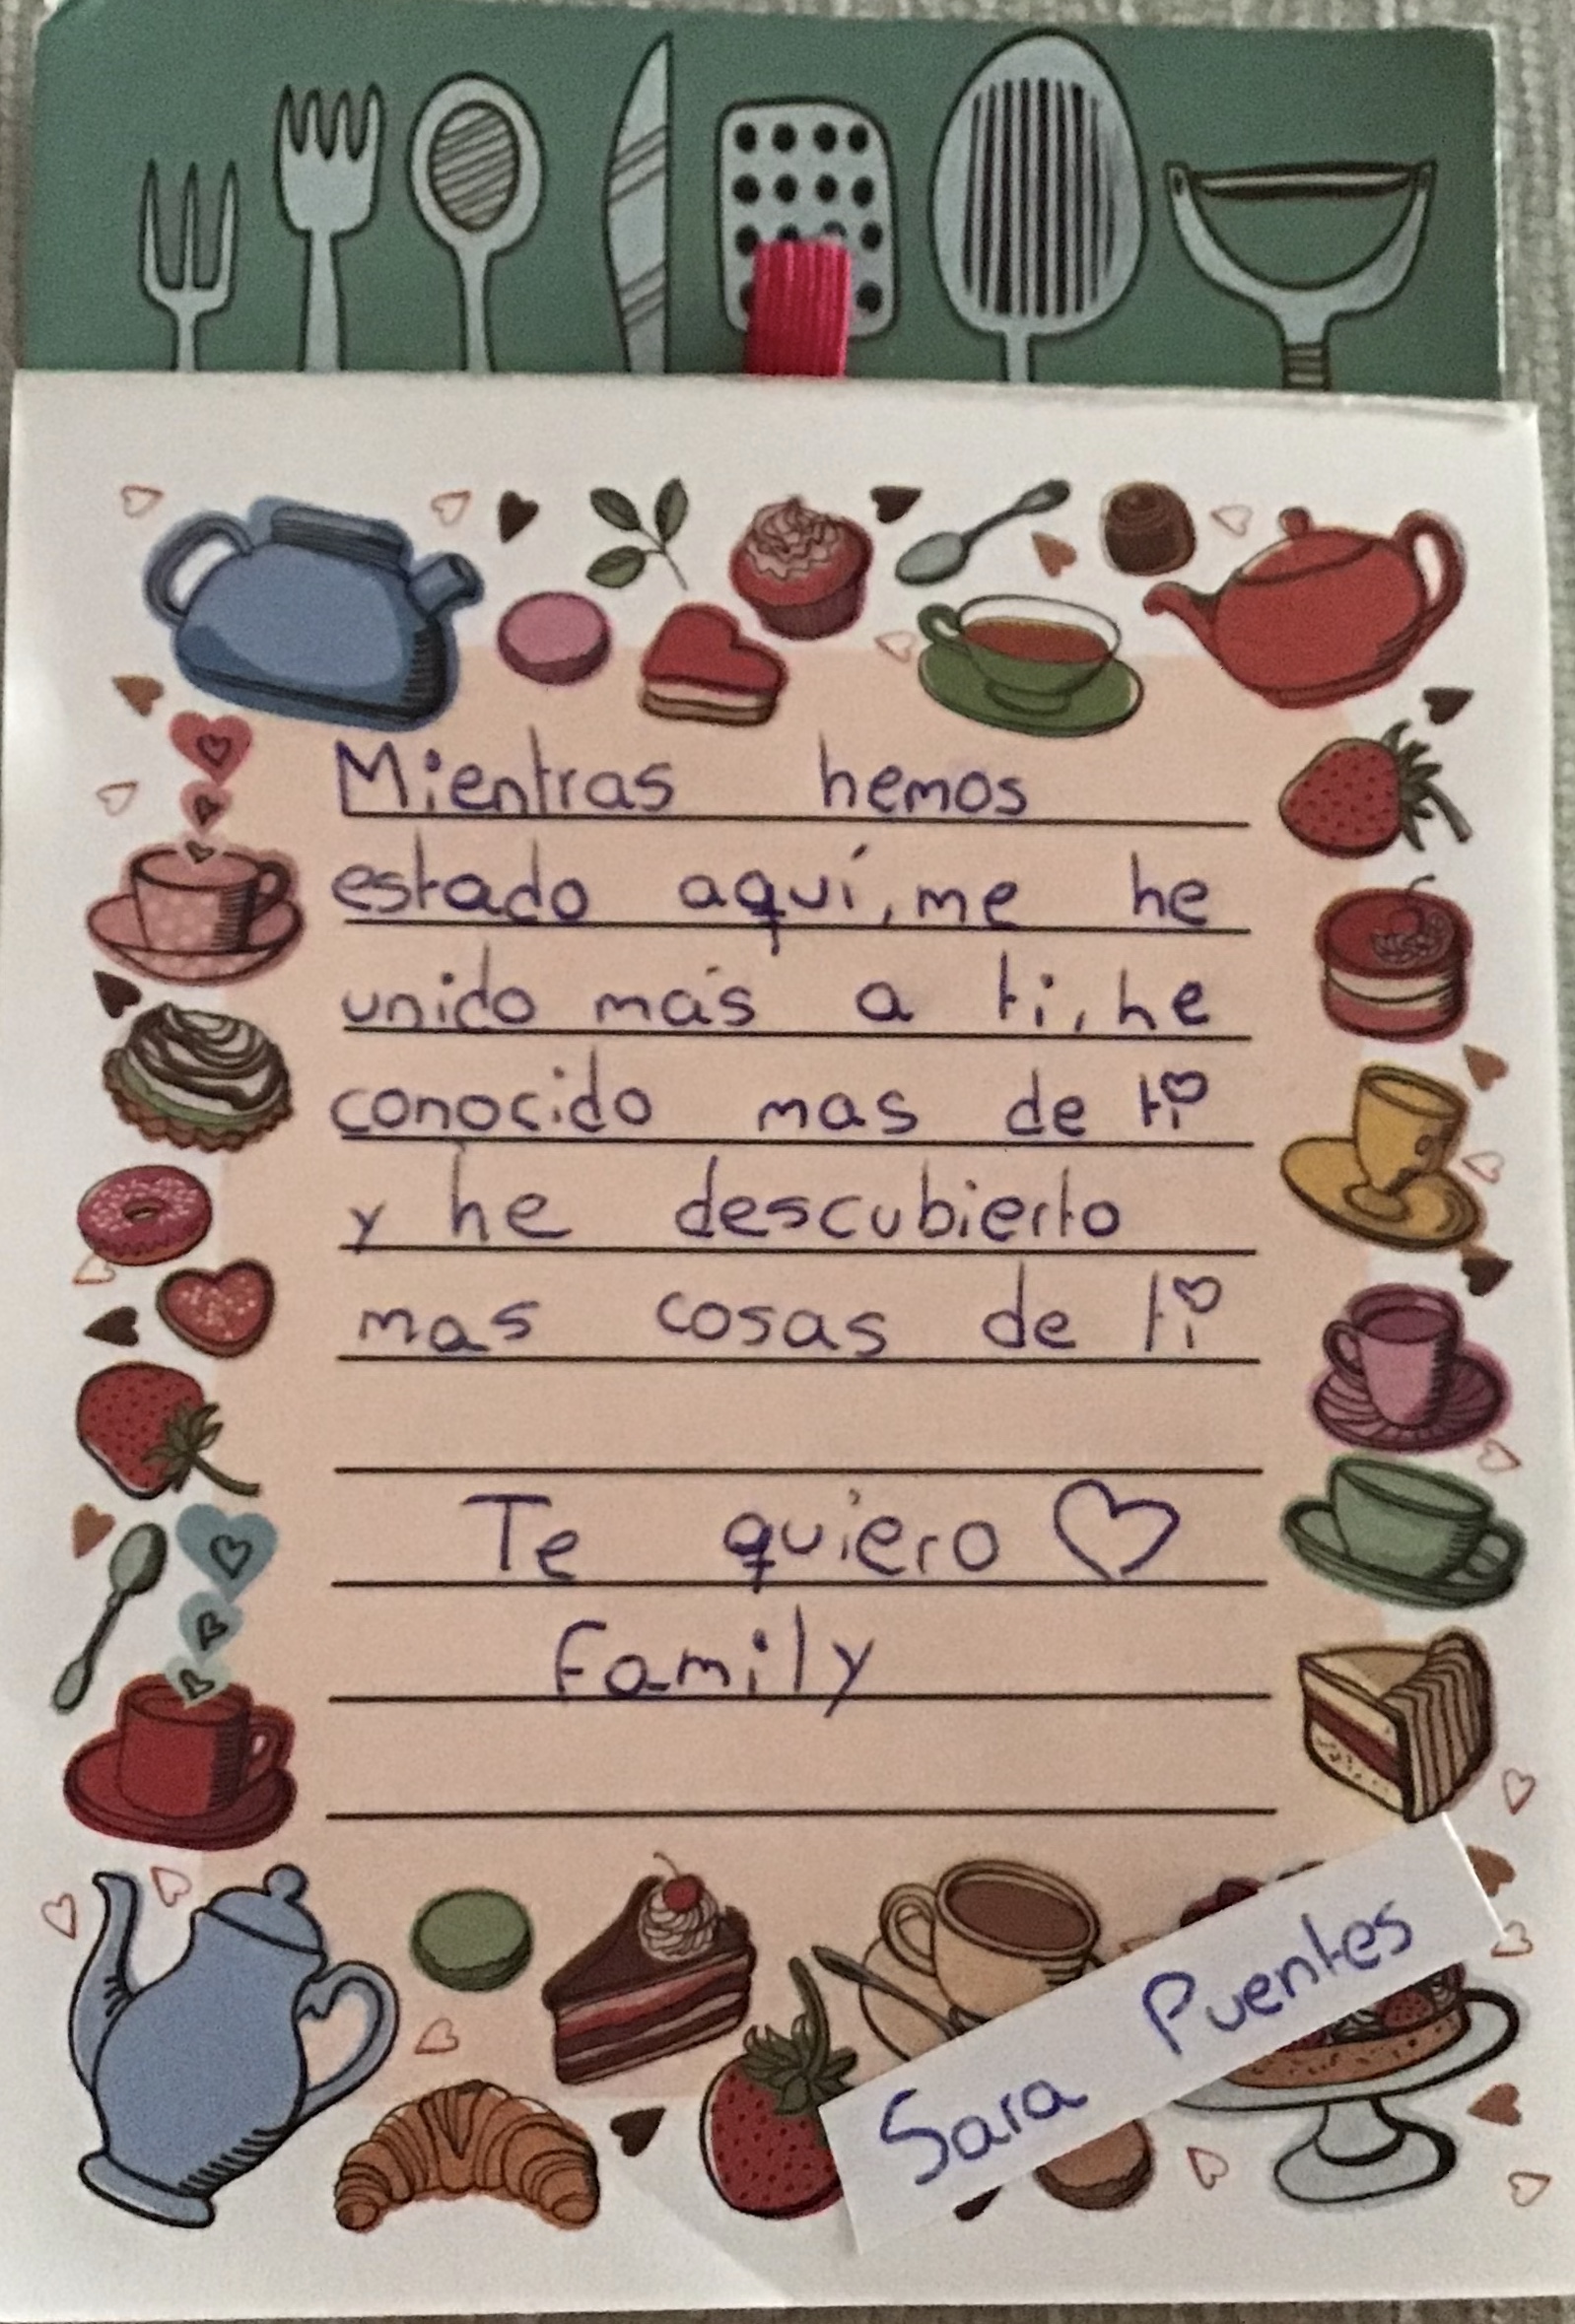 Mientras hemos
estado aquí, me he
unido más a ti, he
conocido mas de ti
y he descubierto
mas cosas de ti
Te quiero ♡
Family
Sara Puentes